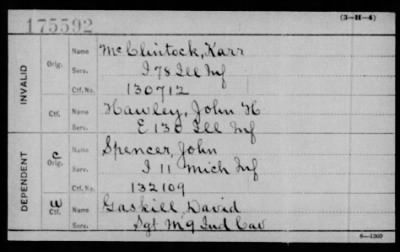 175592
(3-H-4)
INVALID
Orig.
Name McClintock, Karr
Serv. I 78 Ill Inf
Ctf. No. 130712
Ctf.
Name Hawley, John H
Serv. E 130 Ill Inf
DEPENDENT
C
Orig.
Name Spencer, John
Serv. I 11 Mich Inf
Ctf. No. 132109
W
Ctf.
Name Gaskill, David
Serv. Sgt M 9 Ind Cav